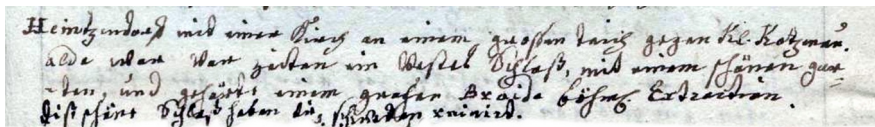 Heintzendorf mit einer Kirch an einem grossen teich gegen Kl. Kotzenau.
alda war vor zeiten ein Vestes Schloß, mit einem schönen gar-
ten, und gehörte einem grafen Braida böhm. Extraction.
diß schöne Schloß haben die Schweden ruinirt.